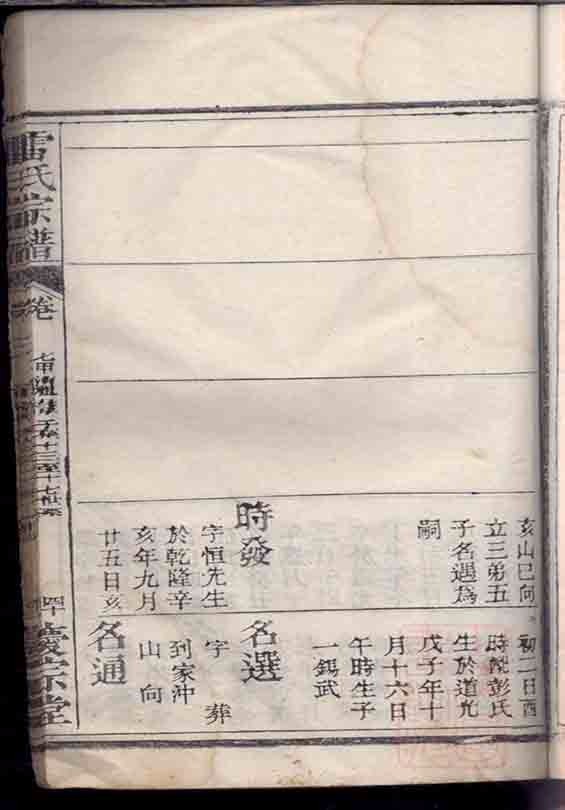 亥山巳向
立三弟五
子名遇為
嗣
時發
字恒先生
於乾隆辛
亥年九月
廿五日亥
初二日酉
時配彭氏
生於道光
戊子年十
月十六日
午時生子
一錫武
名選
字 葬
到家沖
山向
名通
雷氏宗譜
卷
慶宗堂